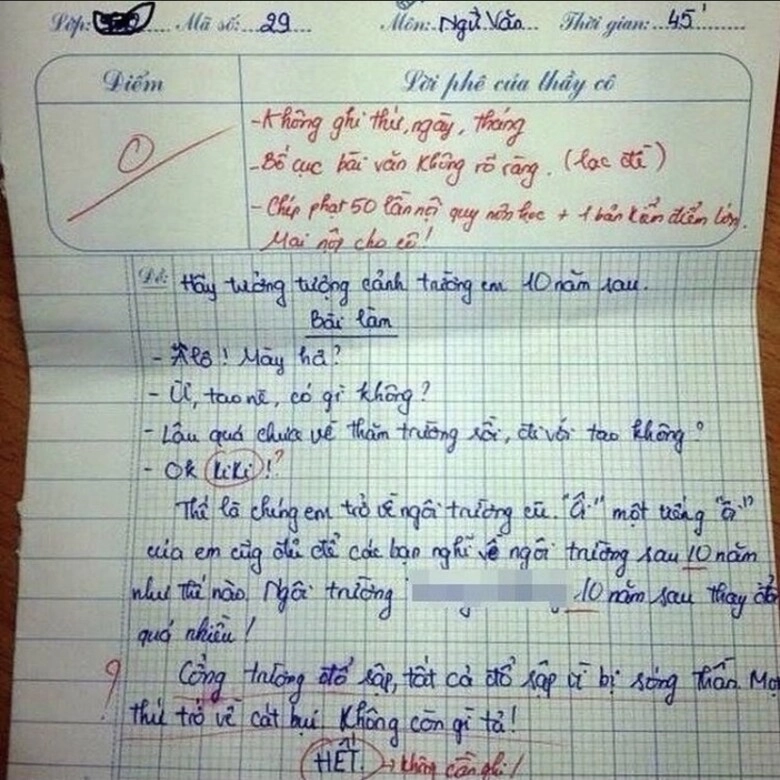 Lớp: Mã số: 29 Môn: Ngữ Văn Thời gian: 45'
Điểm Lời phê của thầy cô
0
- Không ghi thứ, ngày, tháng
- Bố cục bài văn không rõ ràng. (lạc đề)
- Chép phạt 50 lần nội quy môn học + 1 bản kiểm điểm lớn.
Mai nộp cho cô!
Đề: Hãy tưởng tượng cảnh trường em 10 năm sau.
Bài làm
- Alô! Mày hả?
- Ừ, tao nè, có gì không?
- Lâu quá chưa về thăm trường rồi, đi với tao không?
- Ok kiki!?
Thế là chúng em trở về ngôi trường cũ. "Á!" một tiếng "á!"
của em cũng đủ để các bạn nghĩ về ngôi trường sau 10 năm
như thế nào. Ngôi trường 10 năm sau thay đổ
quá nhiều!
? Cổng trường đổ sập, tất cả đổ sập vì bị sóng thần. Mọ
thứ trở về cát bụi. Không còn gì tả!
HẾT. → không cần ghi!